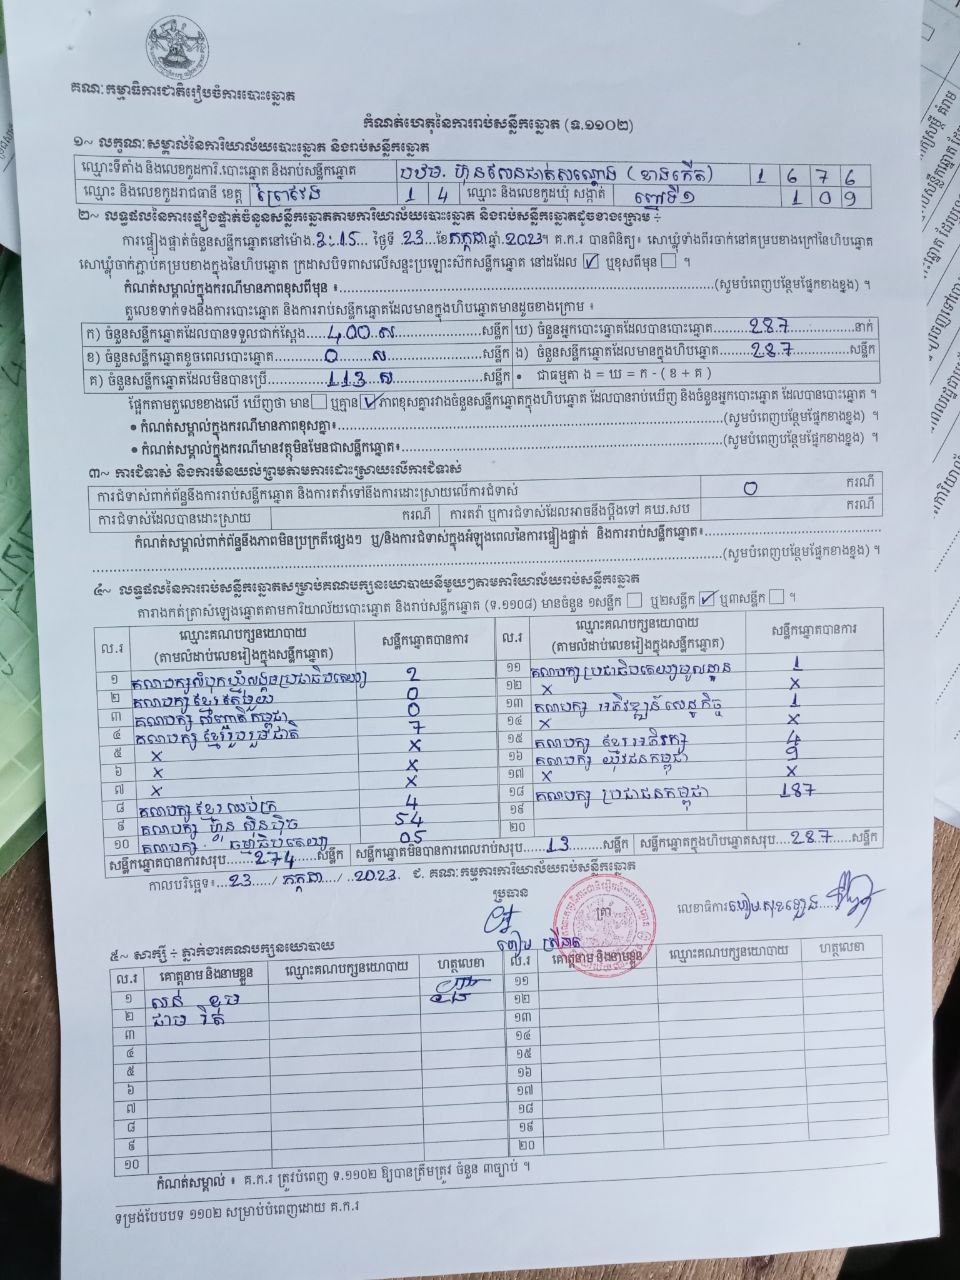 គណៈកម្មាធិការជាតិរៀបចំការបោះឆ្នោត
កំណត់ហេតុនៃការរាប់សន្លឹកឆ្នោត (ទ.១១០២)
១~ លក្ខណៈសម្គាល់នៃការិយាល័យបោះឆ្នោត និងរាប់សន្លឹកឆ្នោត
ឈ្មោះទីតាំង និងលេខកូដការិ.បោះឆ្នោត និងរាប់សន្លឹកឆ្នោត បឋម. ហ៊ុនសែនជាត់សណ្តោង (ខាងកើត) 1 6 7 6
ឈ្មោះ និងលេខកូដរាជធានី ខេត្ត ព្រៃវែង 1 4 ឈ្មោះ និងលេខកូដឃុំ សង្កាត់ ពៅទី១ 1 0 9
២~ លទ្ធផលនៃការផ្ទៀងផ្ទាត់ចំនួនសន្លឹកឆ្នោតតាមការិយាល័យបោះឆ្នោត និងរាប់សន្លឹកឆ្នោតដូចខាងក្រោម ÷
ការផ្ទៀងផ្ទាត់ចំនួនសន្លឹកឆ្នោតនៅម៉ោង.3:15... ថ្ងៃទី .23...ខែកក្កដាឆ្នាំ.2023។ គ.ក.រ បានពិនិត្យ៖ សោឃ្លុំទាំងពីរចាក់នៅគម្របខាងក្រៅនៃហិបឆ្នោត
សោឃ្លុំចាក់ភ្ជាប់គម្របខាងក្នុងនៃហិបឆ្នោត ក្រដាសបិទពាសលើសន្ទះប្រឡោះស៊កសន្លឹកឆ្នោត នៅដដែល ☑ ឬខុសពីមុន ☐ ។
កំណត់សម្គាល់ក្នុងករណីមានភាពខុសពីមុន ៖..........(សូមបំពេញបន្ថែមផ្នែកខាងខ្នង) ។
តួលេខទាក់ទងនឹងការបោះឆ្នោត និងការរាប់សន្លឹកឆ្នោតដែលមានក្នុងហិបឆ្នោតមានដូចខាងក្រោម ៖
ក) ចំនួនសន្លឹកឆ្នោតដែលបានទទួលជាក់ស្តែង....400 ស..........សន្លឹក ឃ) ចំនួនអ្នកបោះឆ្នោតដែលបានបោះឆ្នោត........287..........នាក់
ខ) ចំនួនសន្លឹកឆ្នោតខូចពេលបោះឆ្នោត........0 ស..........សន្លឹក ង) ចំនួនសន្លឹកឆ្នោតដែលមានក្នុងហិបឆ្នោត......287........សន្លឹក
គ) ចំនួនសន្លឹកឆ្នោតដែលមិនបានប្រើ..........113 ស..........សន្លឹក • ជាធម្មតា ង = ឃ = ក - ( ខ + គ )
ផ្អែកតាមតួលេខខាងលើ ឃើញថា មាន ☐ ឬគ្មាន ☑ ភាពខុសគ្នារវាងចំនួនសន្លឹកឆ្នោតក្នុងហិបឆ្នោត ដែលបានរាប់ឃើញ និងចំនួនអ្នកបោះឆ្នោត ដែលបានបោះឆ្នោត ។
• កំណត់សម្គាល់ក្នុងករណីមានភាពខុសគ្នា៖..........(សូមបំពេញបន្ថែមផ្នែកខាងខ្នង) ។
• កំណត់សម្គាល់ក្នុងករណីមានវត្ថុមិនមែនជាសន្លឹកឆ្នោត៖..........(សូមបំពេញបន្ថែមផ្នែកខាងខ្នង) ។
៣~ ការជំទាស់ និងការមិនយល់ព្រមតាមការដោះស្រាយលើការជំទាស់
ការជំទាស់ពាក់ព័ន្ធនឹងការរាប់សន្លឹកឆ្នោត និងការតវ៉ាទៅនឹងការដោះស្រាយលើការជំទាស់ 0 ករណី
ការជំទាស់ដែលបានដោះស្រាយ ករណី ការតវ៉ា ឬការជំទាស់ដែលអាចនឹងប្តឹងទៅ គឃ.សប ករណី
កំណត់សម្គាល់ពាក់ព័ន្ធនឹងភាពមិនប្រក្រតីផ្សេងៗ ឬ/និងការជំទាស់ក្នុងអំឡុងពេលនៃការផ្ទៀងផ្ទាត់ និងការរាប់សន្លឹកឆ្នោត៖..........
..........(សូមបំពេញបន្ថែមផ្នែកខាងខ្នង) ។
៤~ លទ្ធផលនៃការរាប់សន្លឹកឆ្នោតសម្រាប់គណបក្សនយោបាយនីមួយៗតាមការិយាល័យរាប់សន្លឹកឆ្នោត
តារាងកត់ត្រាសំឡេងឆ្នោតតាមការិយាល័យបោះឆ្នោត និងរាប់សន្លឹកឆ្នោត (ទ.១១០៨) មានចំនួន ១សន្លឹក ☐ ឬ២សន្លឹក ☑ ឬ៣សន្លឹក ☐ ។
ល.រ ឈ្មោះគណបក្សនយោបាយ (តាមលំដាប់លេខរៀងក្នុងសន្លឹកឆ្នោត) សន្លឹកឆ្នោតបានការ ល.រ ឈ្មោះគណបក្សនយោបាយ (តាមលំដាប់លេខរៀងក្នុងសន្លឹកឆ្នោត) សន្លឹកឆ្នោតបានការ
១ គណបក្សសំបុកឃ្មុំសង្គមប្រជាធិបតេយ្យ 2 ១១ គណបក្ស ប្រជាធិបតេយ្យមូលដ្ឋាន 1
២ គណបក្ស ខ្មែរតែមួយ 0 ១២ x x
៣ គណបក្ស សញ្ជាតិកម្ពុជា 0 ១៣ គណបក្ស អភិវឌ្ឍន៍សេដ្ឋកិច្ច 1
៤ គណបក្ស ខ្មែររួបរួមជាតិ 7 ១៤ x x
៥ x x ១៥ គណបក្ស ខ្មែរអភិរក្ស 4
៦ x x ១៦ គណបក្ស យុវជនកម្ពុជា 9
៧ x x ១៧ x x
៨ គណបក្ស ខ្មែរឈប់ក្រ 4 ១៨ គណបក្ស ប្រជាជនកម្ពុជា 187
៩ គណបក្ស ហ៊្វុនស៊ិនប៉ិច 54 ១៩
១០ គណបក្ស ធម្មាធិបតេយ្យ 05 ២០
សន្លឹកឆ្នោតបានការសរុប.......274.......សន្លឹក សន្លឹកឆ្នោតមិនបានការពេលរាប់សរុប......13........សន្លឹក សន្លឹកឆ្នោតក្នុងហិបឆ្នោតសរុប..287...សន្លឹក
កាលបរិច្ឆេទ៖....23...../ កក្កដា..../ ..2023. ជ. គណៈកម្មការការិយាល័យរាប់សន្លឹកឆ្នោត
ប្រធាន ត្រា លេខាធិការ
៥~ សាក្សី ÷ ភ្នាក់ងារគណបក្សនយោបាយ
ល.រ គោត្តនាម និងនាមខ្លួន ឈ្មោះគណបក្សនយោបាយ ហត្ថលេខា ល.រ គោត្តនាម និងនាមខ្លួន ឈ្មោះគណបក្សនយោបាយ ហត្ថលេខា
១ ១១
២ ១២
៣ ១៣
៤ ១៤
៥ ១៥
៦ ១៦
៧ ១៧
៨ ១៨
៩ ១៩
១០ ២០
កំណត់សម្គាល់ ៖ គ.ក.រ ត្រូវបំពេញ ទ.១១០២ ឱ្យបានត្រឹមត្រូវ ចំនួន ៣ច្បាប់ ។
ទម្រង់បែបបទ ១១០២ សម្រាប់បំពេញដោយ គ.ក.រ